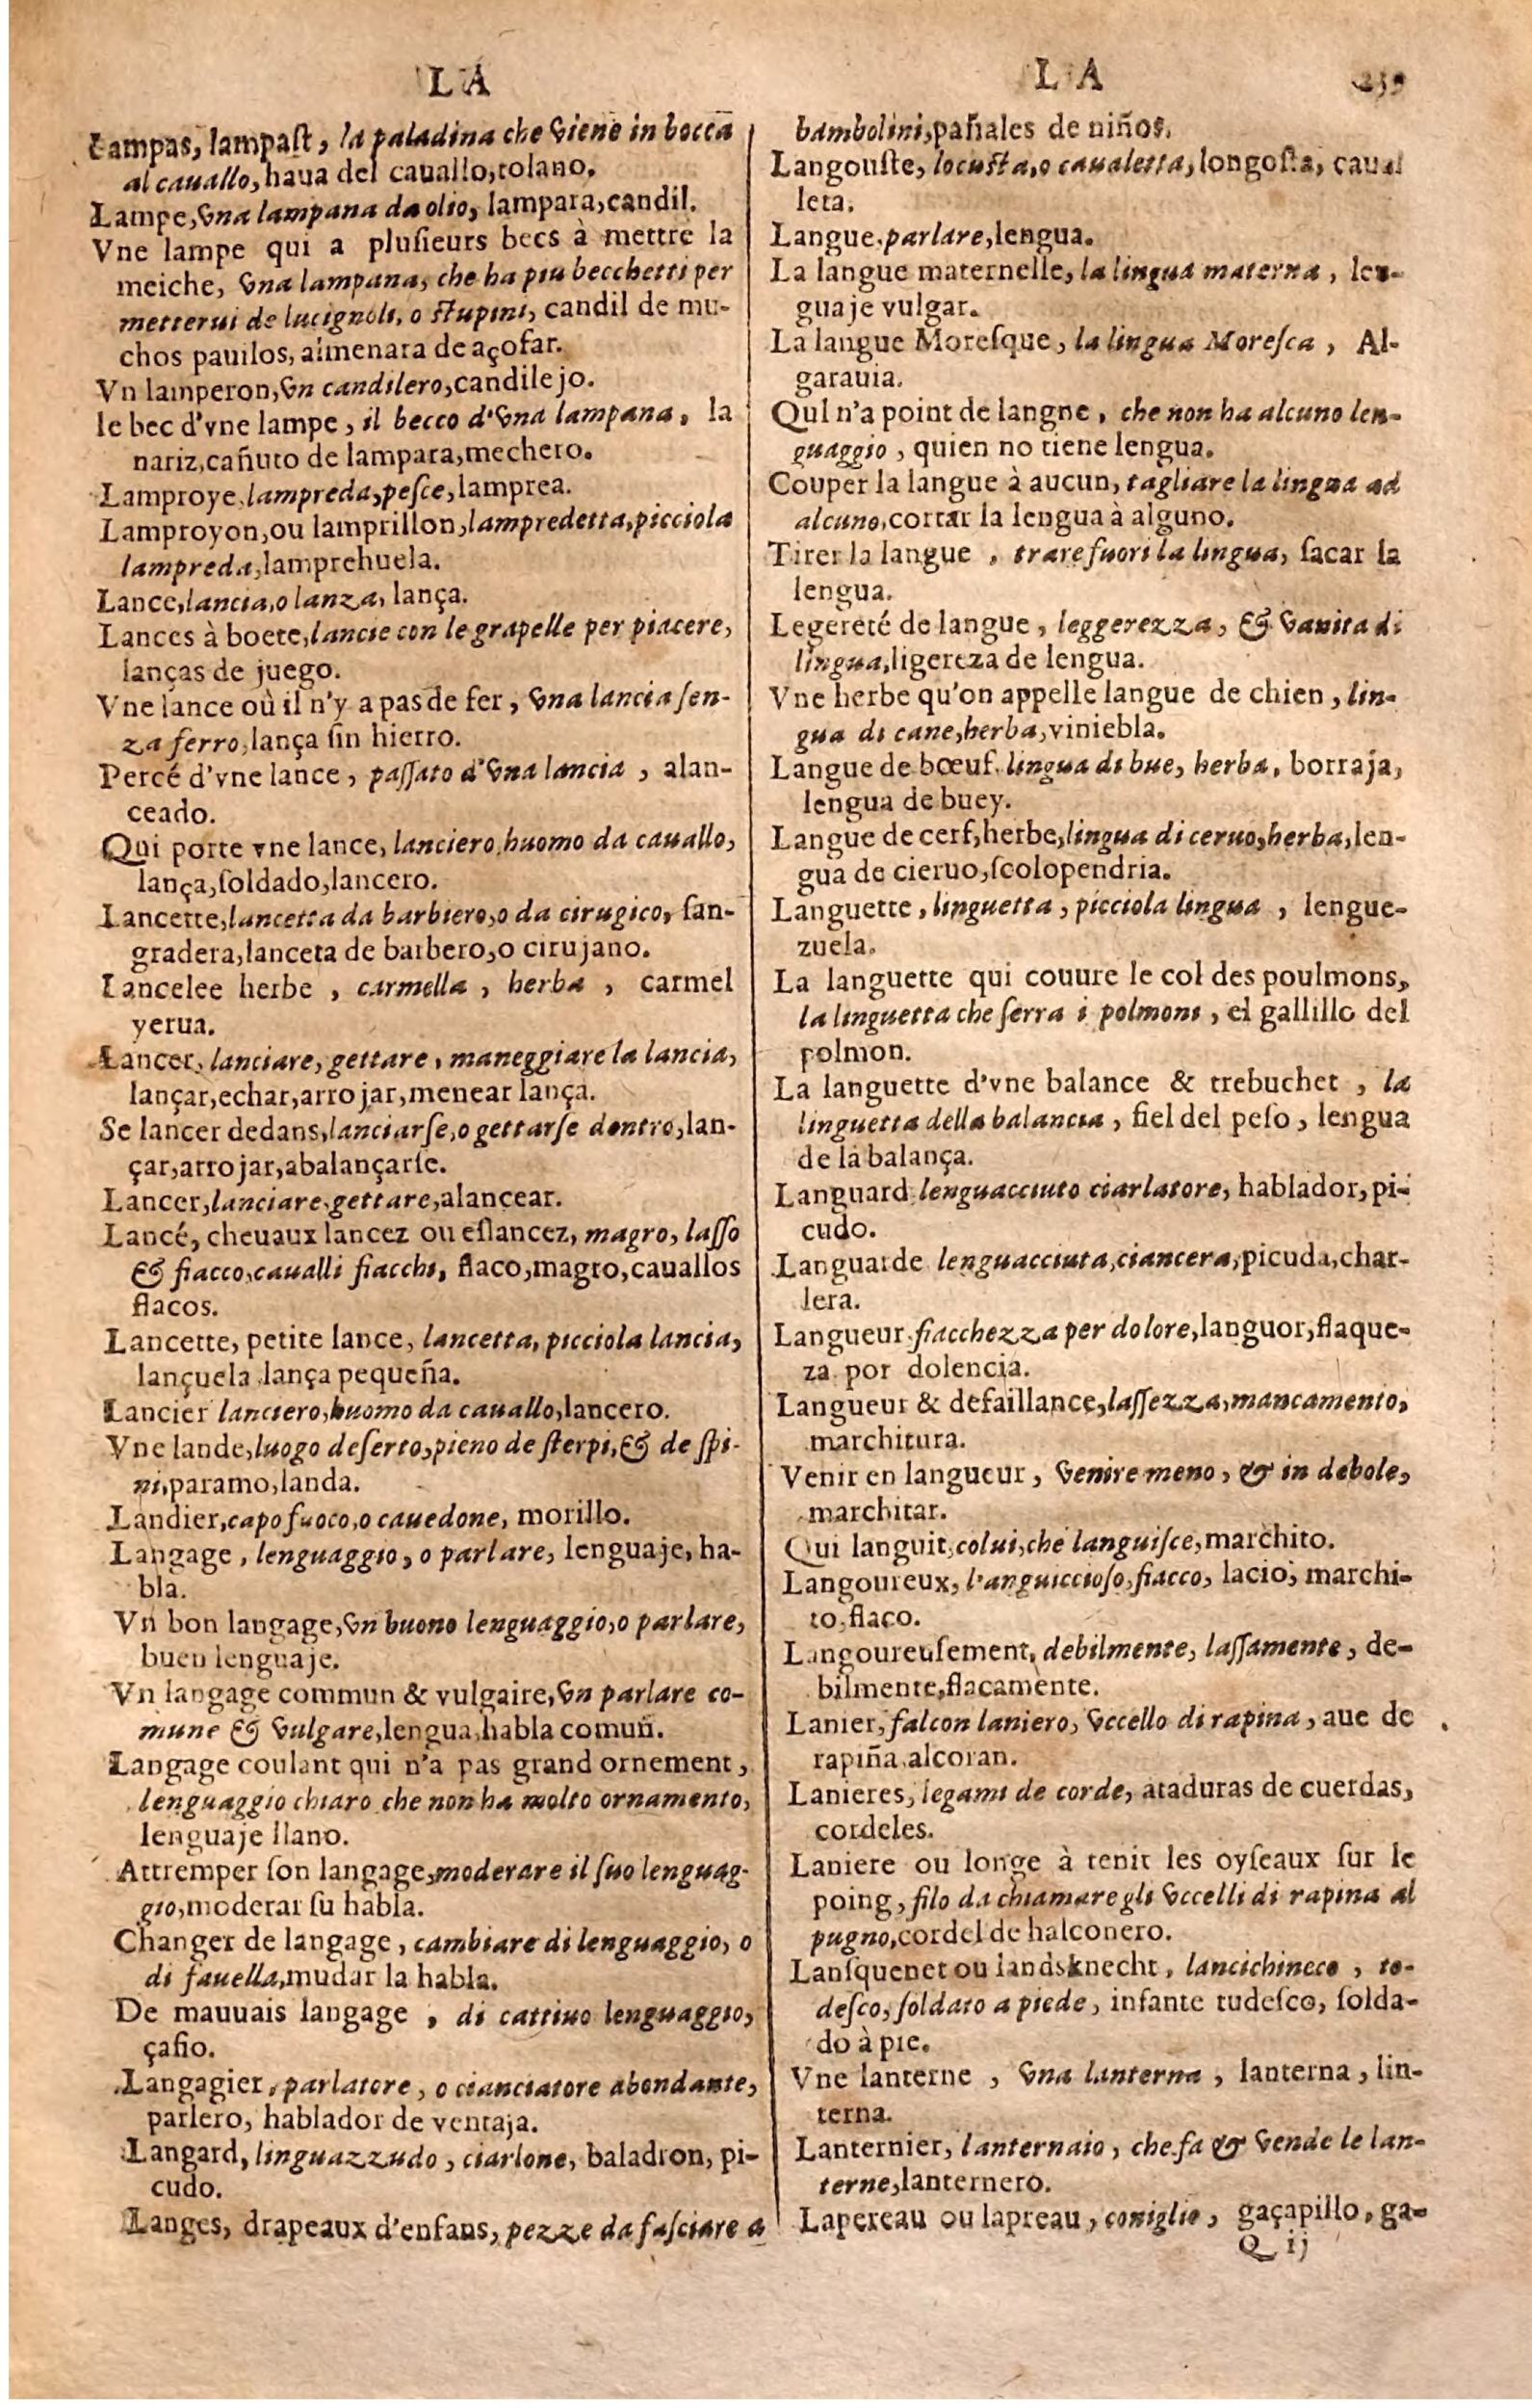 LA
Lampas, lampaſt, la paladina che viene in bocca
al cauallo, haua del cauallo, tolano.
Lampe, vna lampana da olio, lampara, candil.
Vne lampe qui a pluſieurs becs à mettre la
meiche, vna lampana, che ha piu becchetti per
metterui de lucignoli, o ſtupini, candil de mu-
chos pauilos, almenara de açofar.
Vn lamperon, vn candilero, candilejo.
le bec d'vne lampe, il becco d'vna lampana, la
nariz, cañuto de lampara, mechero.
Lamproye, lampreda, peſce, lamprea.
Lamproyon, ou lamprillon, lampredetta, picciola
lampreda, lamprehuela.
Lance, lancia, o lanza, lança.
Lances à boete, lancie con le grapelle per piacere,
lanças de juego.
Vne lance où il n'y a pas de fer, vna lancia ſen-
za ferro, lança ſin hierro.
Percé d'vne lance, paſſato d'vna lancia, alan-
ceado.
Qui porte vne lance, lanciero, huomo da cauallo,
lança, ſoldado, lancero.
Lancette, lancetta da barbiero, o da cirugico, ſan-
gradera, lanceta de barbero, o cirujano.
Lancelee herbe, carmella, herba, carmel
yerua.
Lancer, lanciare, gettare, maneggiare la lancia,
lançar, echar, arrojar, menear lança.
Se lancer dedans, lanciarſe, o gettarſe dentro, lan-
çar, arrojar, abalançarſe.
Lancer, lanciare, gettare, alancear.
Lancé, cheuaux lancez ou eſlancez, magro, laſſo
& fiacco, caualli fiacchi, flaco, magro, cauallos
flacos.
Lancette, petite lance, lancetta, picciola lancia,
lançuela, lança pequeña.
Lancier lanciero, huomo da cauallo, lancero.
Vne lande, luogo deſerto, pieno de ſterpi, & de ſpi-
ni, paramo, landa.
Landier, capo fuoco, o cauedone, morillo.
Langage, lenguaggio, o parlare, lenguaje, ha-
bla.
Vn bon langage, vn buono lenguaggio, o parlare,
buen lenguaje.
Vn langage commun & vulgaire, vn parlare co-
mune & vulgare, lengua, habla comuñ.
Langage coulant qui n'a pas grand ornement,
lenguaggio chiaro che non ha molto ornamento,
lenguaje llano.
Attremper ſon langage, moderare il ſuo lenguag-
gio, moderar ſu habla.
Changer de langage, cambiare di lenguaggio, o
di fauella, mudar la habla.
De mauuais langage, di cattiuo lenguaggio,
çafio.
Langagier, parlatore, o cianciatore abondante,
parlero, hablador de ventaja.
Langard, linguazzudo, ciarlone, baladron, pi-
cudo.
Langes, drapeaux d'enfans, pezze da faſciare a
LA 239
bambolini, pañales de niños.
Langouſte, locuſta, o caualetta, longoſta, caual
leta.
Langue, parlare, lengua.
La langue maternelle, la lingua materna, len-
guaje vulgar.
La langue Moreſque, la lingua Moreſca, Al-
garauia.
Qui n'a point de langne, che non ha alcuno len-
guaggio, quien no tiene lengua.
Couper la langue à aucun, tagliare la lingua ad
alcuno, cortar la lengua à alguno.
Tirer la langue, trare fuori la lingua, ſacar la
lengua.
Legereté de langue, leggerezza, & vanita di
lingua, ligereza de lengua.
Vne herbe qu'on appelle langue de chien, lin-
gua di cane, herba, viniebla.
Langue de bœuf, lingua di bue, herba, borraja,
lengua de buey.
Langue de cerf, herbe, lingua di ceruo, herba, len-
gua de cieruo, ſcolopendria.
Languette, linguetta, picciola lingua, lengue-
zuela.
La languette qui couure le col des poulmons,
la linguetta che ſerra i polmoni, el gallillo del
polmon.
La languette d'vne balance & trebuchet, la
linguetta della balancia, fiel del peſo, lengua
de la balança.
Languard lenguacciuto ciarlatore, hablador, pi-
cudo.
Languarde lenguacciuta, ciancera, picuda, char-
lera.
Langueur, fiacchezza per dolore, languor, flaque-
za por dolencia.
Langueur & defaillance, laſſezza, mancamento,
marchitura.
Venir en langueur, venire meno, & in debole,
marchitar.
Qui languit, colui, che languiſce, marchito.
Langoureux, l'anguiccioſo, fiacco, lacio, marchi-
to, flaco.
Langoureuſement, debilmente, laſſamente, de-
bilmente, flacamente.
Lanier, falcon laniero, vccello di rapina, aue de
rapiña, alcoran.
Lanieres, legami de corde, ataduras de cuerdas,
cordeles.
Laniere ou longe à tenir les oyſeaux ſur le
poing, filo da chiamare gli vccelli di rapina al
pugno, cordel de halconero.
Lanſquenet ou landsknecht, lancichineco, to-
deſco, ſoldato a piede, infante tudeſco, ſolda-
do à pie.
Vne lanterne, vna lanterna, lanterna, lin-
terna.
Lanternier, lanternaio, che fa & vende le lan-
terne, lanternero.
Lapereau ou lapreau, coniglio, gaçapillo, ga-
Q ij